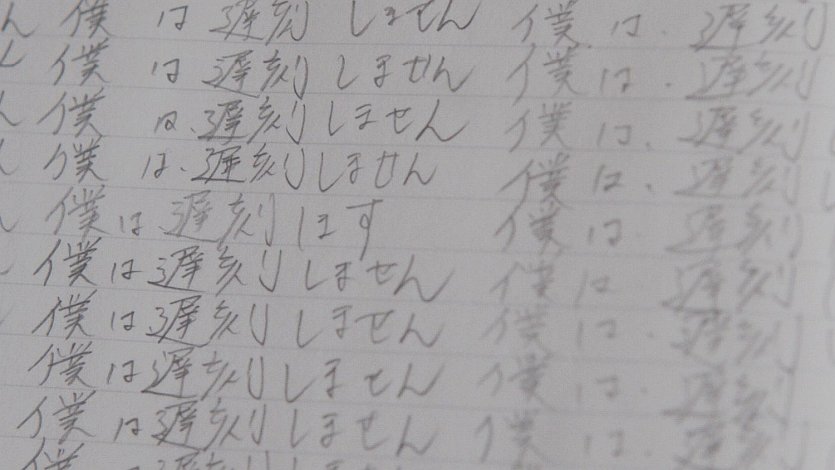 ん 僕は遅刻しません 僕は遅刻
ん 僕は遅刻しません 僕は遅刻
ん 僕は遅刻しません 僕は遅刻
ん 僕は遅刻しません 僕は遅刻
ん 僕は遅刻します 僕は遅刻
僕は遅刻しません 僕は遅刻
僕は遅刻しません 僕は遅刻
僕は遅刻しません 僕は遅刻
僕は遅刻しません 僕は遅刻